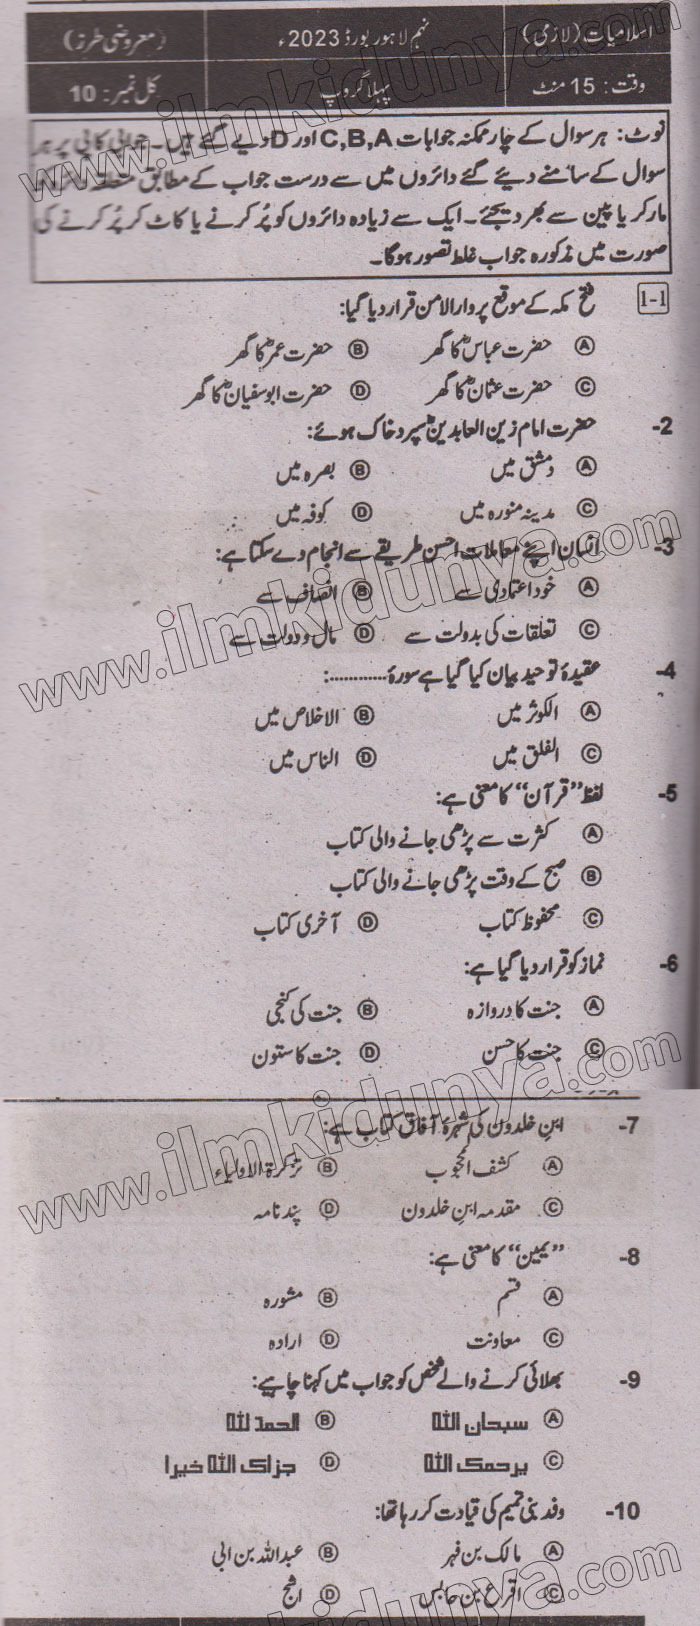 اسلامیات (لازمی) نہم لاہور بورڈ 2023ء (معروضی طرز)
وقت: 15 منٹ پہلا گروپ کل نمبر: 10
نوٹ: ہر سوال کے چار ممکنہ جوابات C,B,A اور D دیے گئے ہیں۔ جوابی کاپی پر ہر
سوال کے سامنے دیئے گئے دائروں میں سے درست جواب کے مطابق متعلقہ دائرہ کو
مارکر یا پین سے بھر دیجئے۔ ایک سے زیادہ دائروں کو پُر کرنے یا کاٹ کر پُر کرنے کی
صورت میں مذکورہ جواب غلط تصور ہوگا۔
1-1 فتح مکہ کے موقع پر دار الامن قرار دیا گیا:
A حضرت عباسؓ کا گھر B حضرت عمرؓ کا گھر
C حضرت عثمانؓ کا گھر D حضرت ابوسفیانؓ کا گھر
2- حضرت امام زین العابدینؒ سپرد خاک ہوئے:
A دمشق میں B بصرہ میں
C مدینہ منورہ میں D کوفہ میں
3- انسان اپنے معاملات احسن طریقے سے انجام دے سکتا ہے:
A خود اعتمادی سے B انصاف سے
C تعلقات کی بدولت سے D مال و دولت سے
4- عقیدۂ توحید بیان کیا گیا ہے سورۂ ............:
A الکوثر میں B الاخلاص میں
C الفلق میں D الناس میں
5- لفظ ”قرآن“ کا معنی ہے:
A کثرت سے پڑھی جانے والی کتاب
B صبح کے وقت پڑھی جانے والی کتاب
C محفوظ کتاب D آخری کتاب
6- نماز کو قرار دیا گیا ہے:
A جنت کا دروازہ B جنت کی کنجی
C جنت کا حسن D جنت کا ستون
7- ابنِ خلدون کی شہرۂ آفاق کتاب ہے:
A کشف المحجوب B تذکرۃ الاولیاء
C مقدمہ ابنِ خلدون D پند نامہ
8- ”یمین“ کا معنی ہے:
A قسم B مشورہ
C معاونت D ارادہ
9- بھلائی کرنے والے شخص کو جواب میں کہنا چاہیے:
A سبحان اللہ B الحمد للہ
C یرحمک اللہ D جزاک اللہ خیرا
10- وفد بنی تمیم کی قیادت کر رہا تھا:
A مالک بن فہر B عبداللہ بن ابی
C اقراع بن حابس D اشج
www.ilmkidunya.com
www.ilmkidunya.com
www.ilmkidunya.com
www.ilmkidunya.com